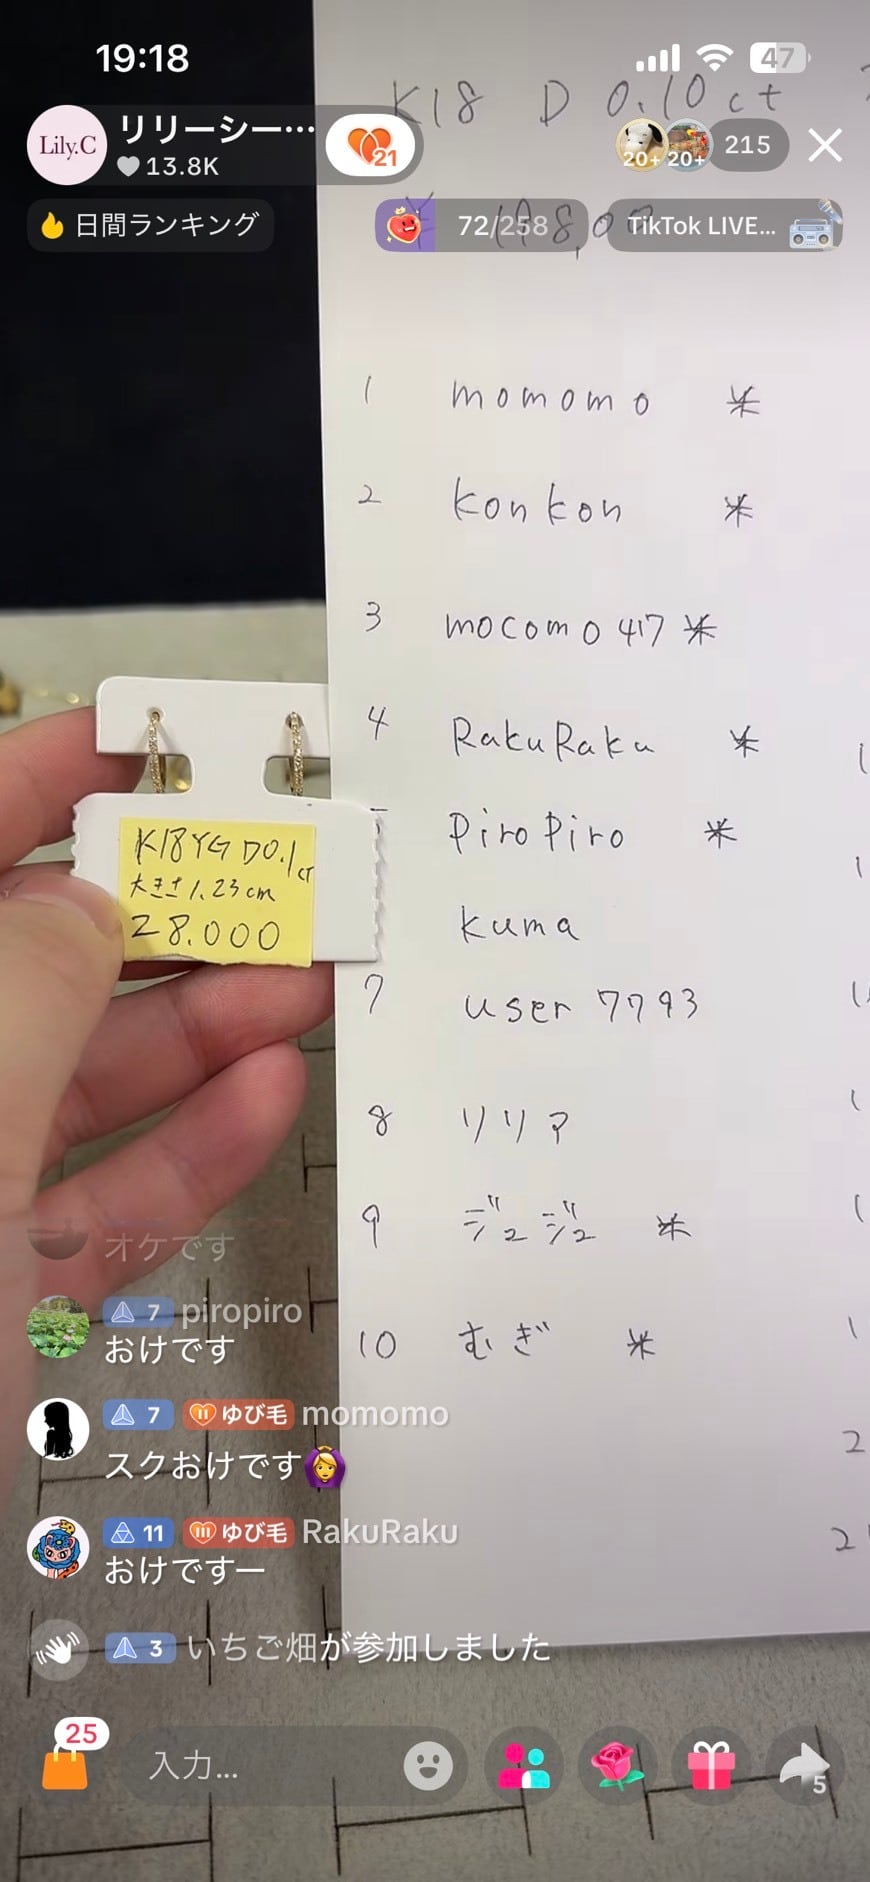 19:18
47
K18 D 0.10ct
Lily.C
リリーシー…
13.8K
21
20+
20+
215
日間ランキング
72/258
TikTok LIVE…
1 momomo *
2 konkon *
3 mocomo417 *
4 RakuRaku *
PiroPiro *
kuma
7 user 7793
8 リリア
9 ジュジュ *
10 むぎ *
K18YG D0.1ct
大きさ1.23cm
28.000
オケです
7 piropiro
おけです
7 II ゆび毛 momomo
スクおけです🙆
11 III ゆび毛 RakuRaku
おけですー
3 いちご畑が参加しました
25
入力...
5